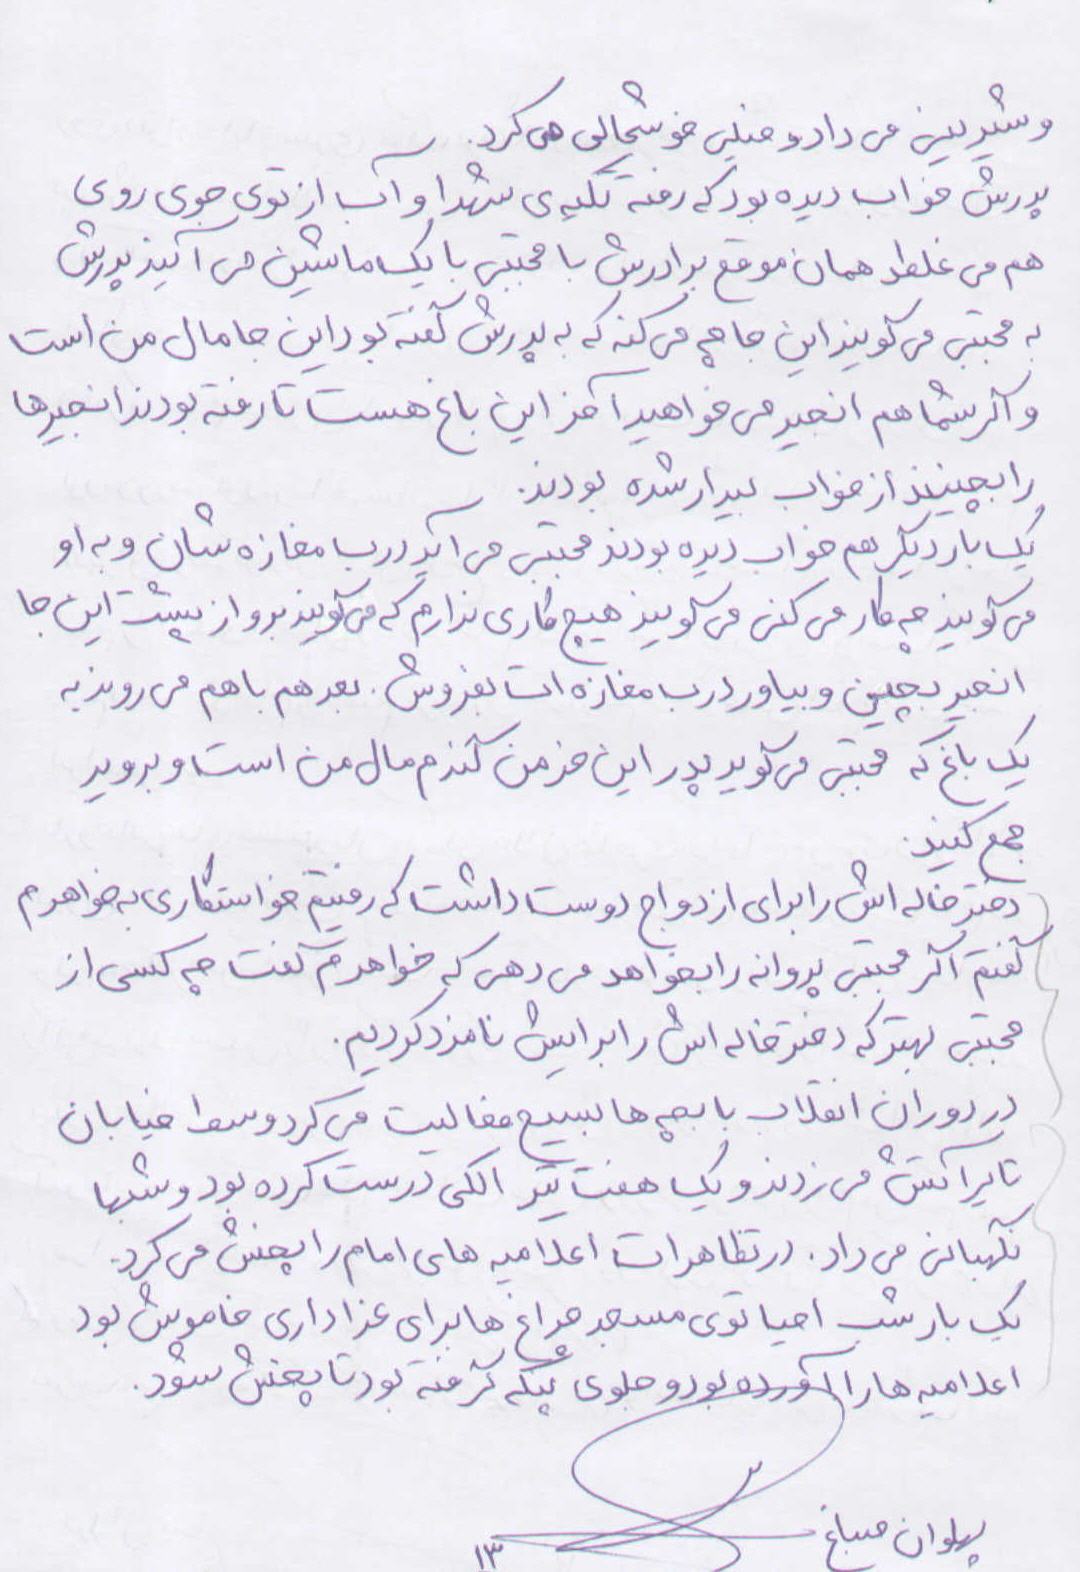 و شیرینی می داد و خیلی خوشحالی می کرد.
پدرش خواب دیده بود که رفته تکیه ی شهدا و آب از توی جوی روی
هم می غلطد همان موقع برادرش با مجتبی با یک ماشین می آیند پدرش
به مجتبی می گویند این جا چه می کنه که به پدرش گفته بود این جا مال من است
و اگر شما هم انجیر می خواهید آخر این باغ هست تا رفته بودند انجیرها
را بچینند از خواب بیدار شده بودند.
یک بار دیگر هم خواب دیده بودند مجتبی می آید درب مغازه شان و به او
می گویند چه کار می کنی می گویند هیچ کاری ندارم که می گویند برو از پشت این جا
انجیر بچین و بیاور درب مغازه ات بفروش. بعد هم با هم می روند به
یک باغ که مجتبی می گوید پدر این خرمن گندم مال من است و بروید
جمع کنید.
دختر خاله اش را برای ازدواج دوست داشت که رفتیم خواستگاری به خواهرم
گفتم اگر مجتبی پروانه را بخواهد می دهی که خواهرم گفت چه کسی از
مجتبی بهتر که دختر خاله اش را برایش نامزد کردیم.
در دوران انقلاب با بچه ها بسیج فعالیت می کرد وسط خیابان
تایر آتش می زدند و یک هفت تیر الکی درست کرده بود و شبها
نگهبانی می داد. در تظاهرات اعلامیه های امام را پخش می کرد.
یک بار شب احیا توی مسجد چراغ ها برای عزاداری خاموش بود
اعلامیه ها را آورده بود و جلوی پنکه گرفته بود تا پخش شود.
پهلوان صباغ
۱۳